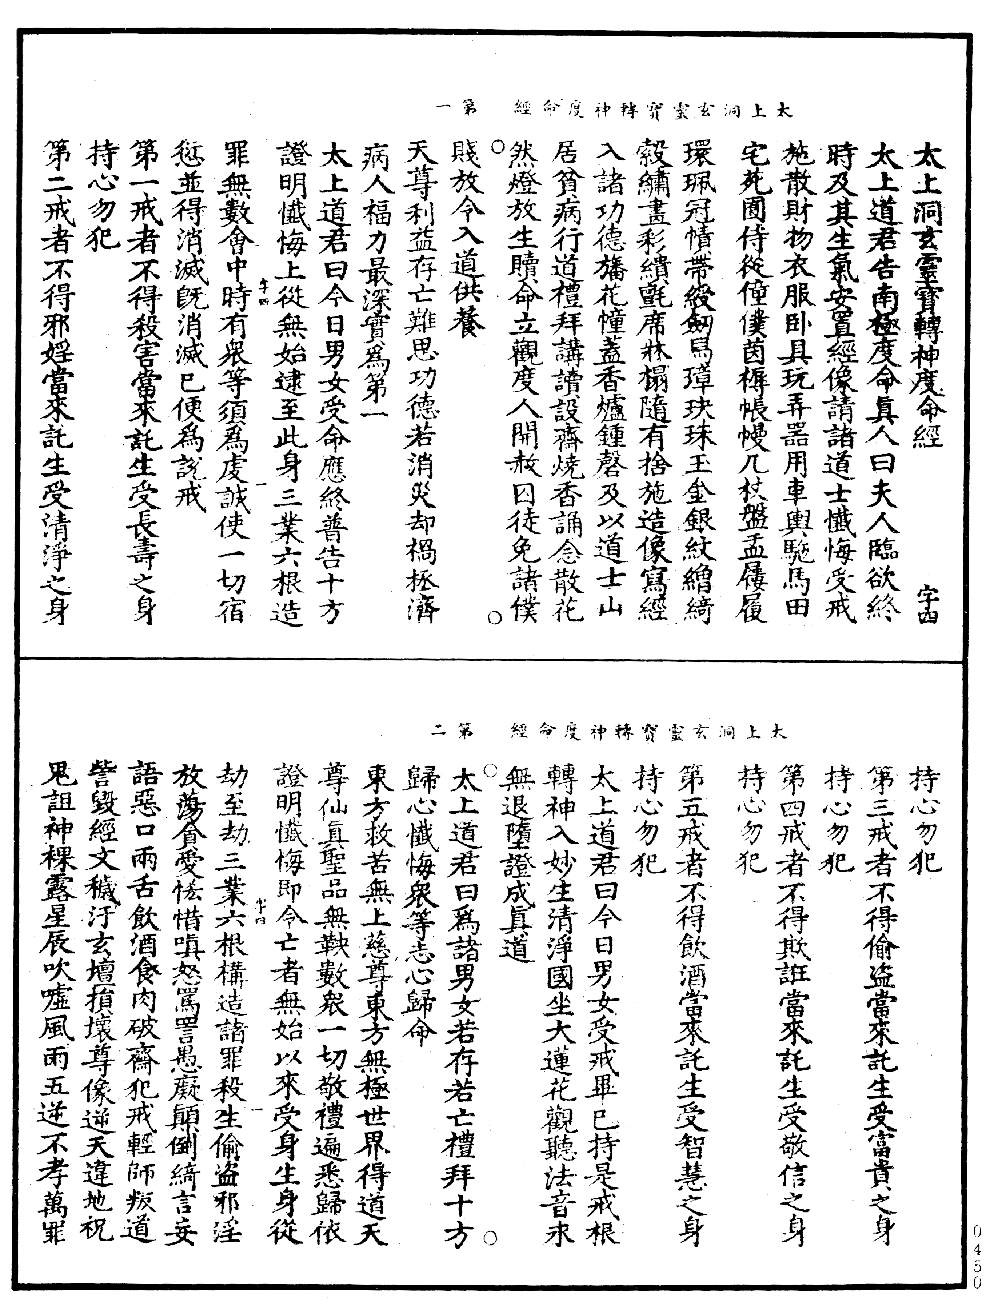 太上洞玄靈寶轉神度命經　第一
太上洞玄靈寶轉神度命經　字四
太上道君告南極度命真人曰夫人臨欲終
時及其生氣安置經像請諸道士懺悔受戒
施散財物衣服卧具玩弄器用車輿駞馬田
宅苑囿侍從僮僕茵褥帳幔几杖盤盂屨履
環珮冠幘帶綬劒舄璋玦珠玉金銀紋繒綺
縠繡畫彩繢氈席牀榻隨有捨施造像寫經
入諸功德旛花幢蓋香爐鍾磬及以道士山
居貧病行道禮拜講讀設齋燒香誦念散花
然燈放生贖命立觀度人開赦囚徒免諸僕
賤放令入道供養
天尊利益存亡難思功德若消災却禍拯濟
病人福力最深實為第一
太上道君曰今日男女受命應終普告十方
證明懺悔上從無始逮至此身三業六根造
字四
罪無數會中時有衆等須為虔誠使一切宿
愆並得消滅旣消滅已便為說戒
第一戒者不得殺害當來託生受長壽之身
持心勿犯
第二戒者不得邪婬當來託生受清淨之身
太上洞玄靈寶轉神度命經　第二
持心勿犯
第三戒者不得偷盗當來託生受富貴之身
持心勿犯
第四戒者不得欺誑當來託生受敬信之身
持心勿犯
第五戒者不得飲酒當來託生受智慧之身
持心勿犯
太上道君曰今日男女受戒畢已持是戒根
轉神入妙生清淨國坐大蓮花觀聽法音永
無退墮證成真道
太上道君曰為諸男女若存若亡禮拜十方
歸心懺悔衆等志心歸命
東方救苦無上慈尊東方無極世界得道天
尊仙真聖品無鞅數衆一切敬禮遍悉歸依
證明懺悔即今亡者無始以來受身生身從
字四
劫至劫三業六根構造諸罪殺生偷盗邪淫
放蕩貪愛恡惜嗔怒罵詈愚癡顛倒綺言妄
語惡口兩舌飲酒食肉破齋犯戒輕師叛道
訾毀經文穢汙玄壇損壞尊像逆天違地祝
鬼詛神裸露星辰吹噓風雨五逆不孝萬罪
0450